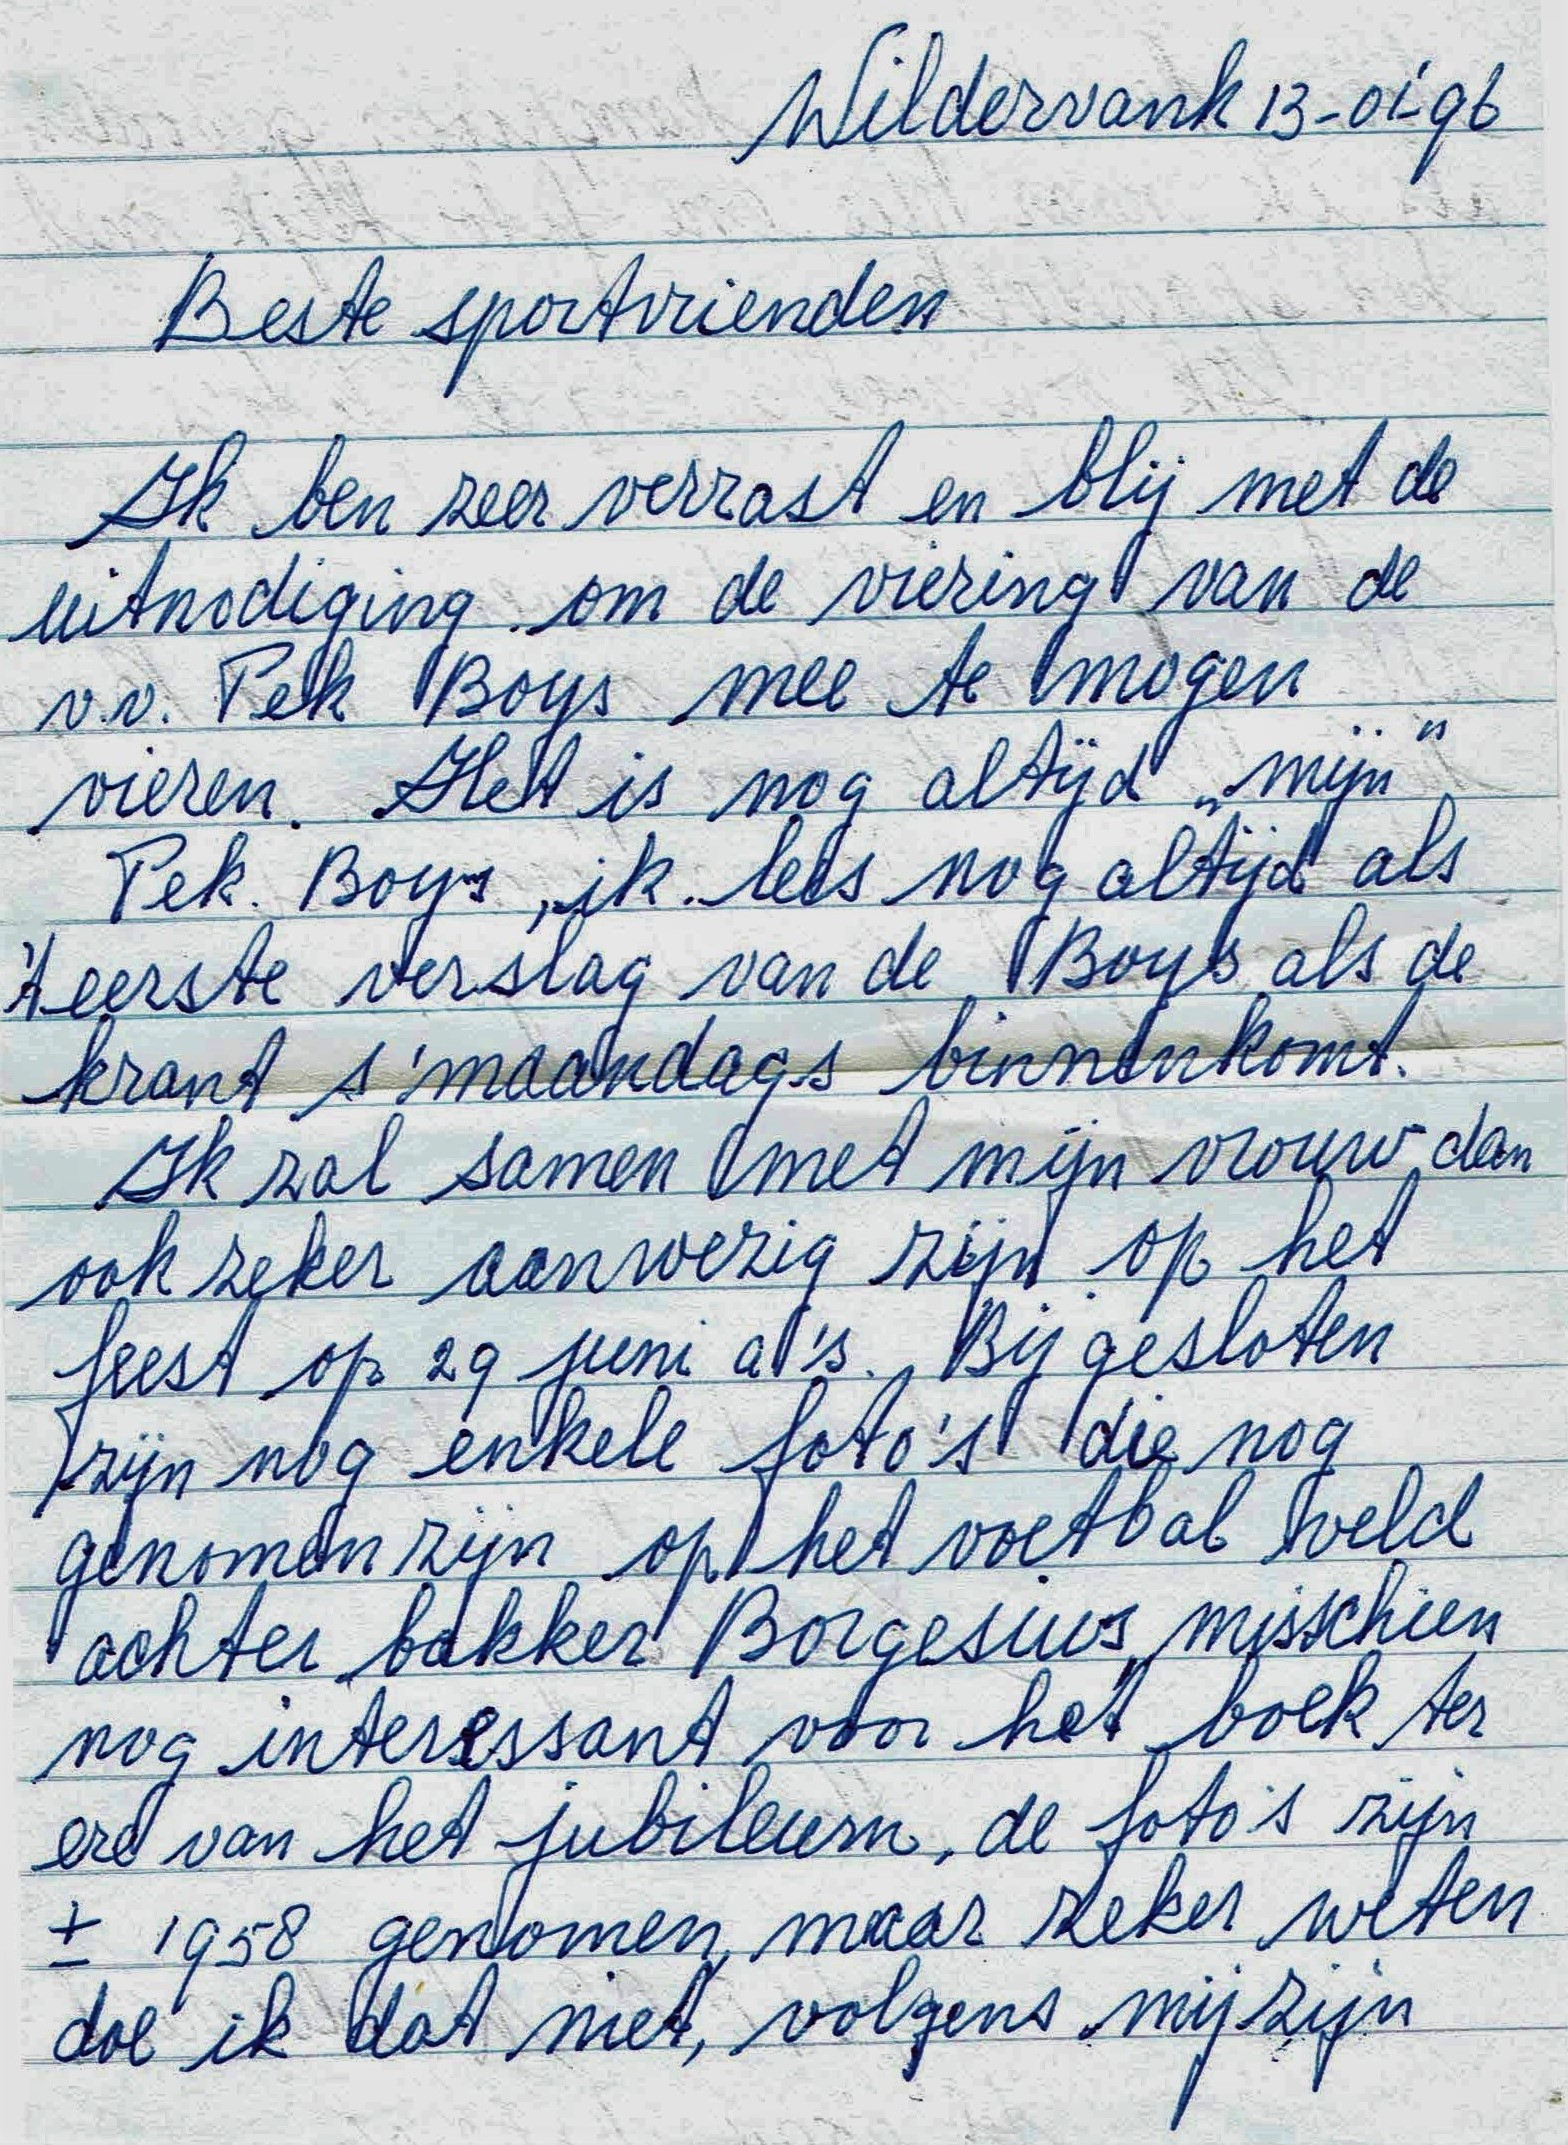 Wildervank 13-01-96
Beste sportvrienden
Ik ben zeer verrast en blij met de
uitnodiging om de viering van de
v.v. Pek Boys mee te mogen
vieren. Het is nog altijd „mijn"
Pek. Boys, ik lees nog altijd als
't eerste verslag van de Boys als de
krant s'maandags binnenkomt.
Ik zal samen met mijn vrouw dan
ook zeker aanwezig zijn op het
feest op 29 juni a's. Bijgesloten
zijn nog enkele foto's die nog
genomen zijn op het voetbal veld
achter bakker Borgesius, misschien
nog interessant voor het boek ter
ere van het jubileum, de foto's zijn
± 1958 genomen, maar zeker weten
doe ik dat niet, volgens mij zijn